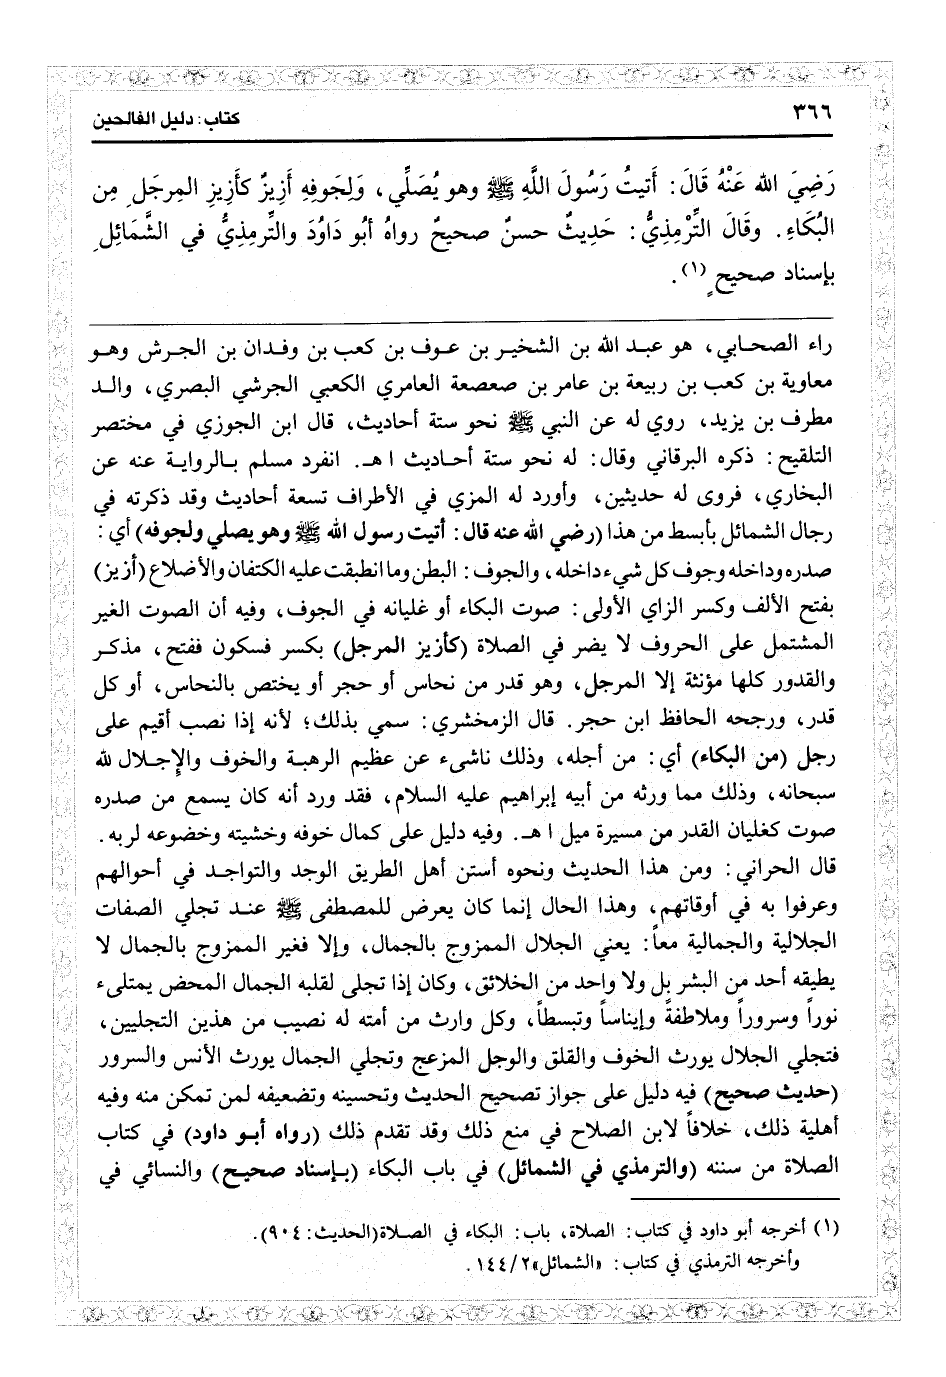 ٣٦٦
كتاب: دليل الفالحين
رَضِيَ الله عَنْهُ قَالَ: أَتيتُ رَسُولَ اللَّهِ ﷺ وهو يُصَلِّي، وَلِجَوفِهِ أَزِيزٌ كَأَزِيزِ المِرجَلِ مِن
البُكَاءِ. وقَالَ التِّرْمِذِيُّ: حَدِيثٌ حسنٌ صحيحٌ رواهُ أَبُو دَاوُدَ والتِّرمِذِيُّ في الشَّمَائِلِ
بإسناد صحيحٍ(١).
راء الصحابي، هو عبد الله بن الشخير بن عوف بن كعب بن وفدان بن الجرش وهو
معاوية بن كعب بن ربيعة بن عامر بن صعصعة العامري الكعبي الجرشي البصري، والد
مطرف بن يزيد، روي له عن النبي ﷺ نحو ستة أحاديث، قال ابن الجوزي في مختصر
التلقيح: ذكره البرقاني وقال: له نحو ستة أحاديث ا هـ. انفرد مسلم بالرواية عنه عن
البخاري، فروى له حديثين، وأورد له المزي في الأطراف تسعة أحاديث وقد ذكرته في
رجال الشمائل بأبسط من هذا (رضي الله عنه قال: أتيت رسول الله ﷺ وهو يصلي ولجوفه) أي:
صدره وداخله وجوف كل شيء داخله، والجوف: البطن وما انطبقت عليه الكتفان والأضلاع (أزيز)
بفتح الألف وكسر الزاي الأولى: صوت البكاء أو غليانه في الجوف، وفيه أن الصوت الغير
المشتمل على الحروف لا يضر في الصلاة (كأزيز المرجل) بكسر فسكون ففتح، مذكر
والقدور كلها مؤنثة إلا المرجل، وهو قدر من نحاس أو حجر أو يختص بالنحاس، أو كل
قدر، ورجحه الحافظ ابن حجر. قال الزمخشري: سمي بذلك؛ لأنه إذا نصب أقيم على
رجل (من البكاء) أي: من أجله، وذلك ناشىء عن عظيم الرهبة والخوف والإجلال لله
سبحانه، وذلك مما ورثه من أبيه إبراهيم عليه السلام، فقد ورد أنه كان يسمع من صدره
صوت كغليان القدر من مسيرة ميل ا هـ. وفيه دليل على كمال خوفه وخشيته وخضوعه لربه.
قال الحراني: ومن هذا الحديث ونحوه أستن أهل الطريق الوجد والتواجد في أحوالهم
وعرفوا به في أوقاتهم، وهذا الحال إنما كان يعرض للمصطفى ﷺ عند تجلي الصفات
الجلالية والجمالية معاً: يعني الجلال الممزوج بالجمال، وإلا فغير الممزوج بالجمال لا
يطيقه أحد من البشر بل ولا واحد من الخلائق، وكان إذا تجلى لقلبه الجمال المحض يمتلىء
نوراً وسروراً وملاطفةً وإيناساً وتبسطاً، وكل وارث من أمته له نصيب من هذين التجليين،
فتجلي الجلال يورث الخوف والقلق والوجل المزعج وتجلي الجمال يورث الأنس والسرور
(حديث صحيح) فيه دليل على جواز تصحيح الحديث وتحسينه وتضعيفه لمن تمكن منه وفيه
أهلية ذلك، خلافاً لابن الصلاح في منع ذلك وقد تقدم ذلك (رواه أبو داود) في كتاب
الصلاة من سننه (والترمذي في الشمائل) في باب البكاء (بإسناد صحيح) والنسائي في
(١) أخرجه أبو داود في كتاب: الصلاة، باب: البكاء في الصلاة(الحديث: ٩٠٤).
وأخرجه الترمذي في كتاب: «الشمائل» ١٤٤/٢.